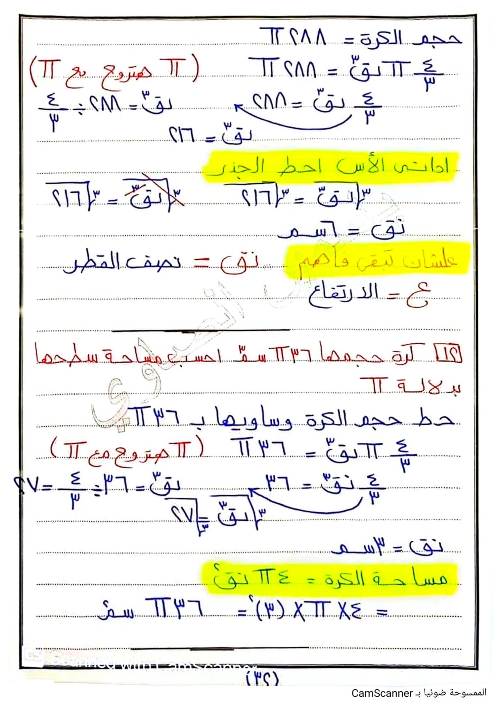 حجم الكرة = ٢٨٨ π
٤/٣ π نق٣ = ٢٨٨ π (π هتروح مع π)
٤/٣ نق٣ = ٢٨٨ نق٣ = ٢٨٨ ÷ ٤/٣
نق٣ = ٢١٦
ادانى الأس احط الجذر
∛نق٣ = ∛٢١٦ ∛نق٣ = ∛٢١٦
نق = ٦ سم
علشان تبقى فاهم نق = نصف القطر
ع = الارتفاع
١٢ كرة حجمها ٣٦ π سم٣ احسب مساحة سطحها
بدلالة π
حط حجم الكرة وساويها بـ ٣٦ π
٤/٣ π نق٣ = ٣٦ π (π هتروح مع π)
٤/٣ نق٣ = ٣٦ نق٣ = ٣٦ ÷ ٤/٣ = ٢٧
∛نق٣ = ∛٢٧
نق = ٣ سم
مساحة الكرة = ٤ π نق٢
= ٤ × π × (٣)٢ = ٣٦ π سم٢
Scanned with CamScanner
(٣٢)
الممسوحة ضوئيا بـ CamScanner